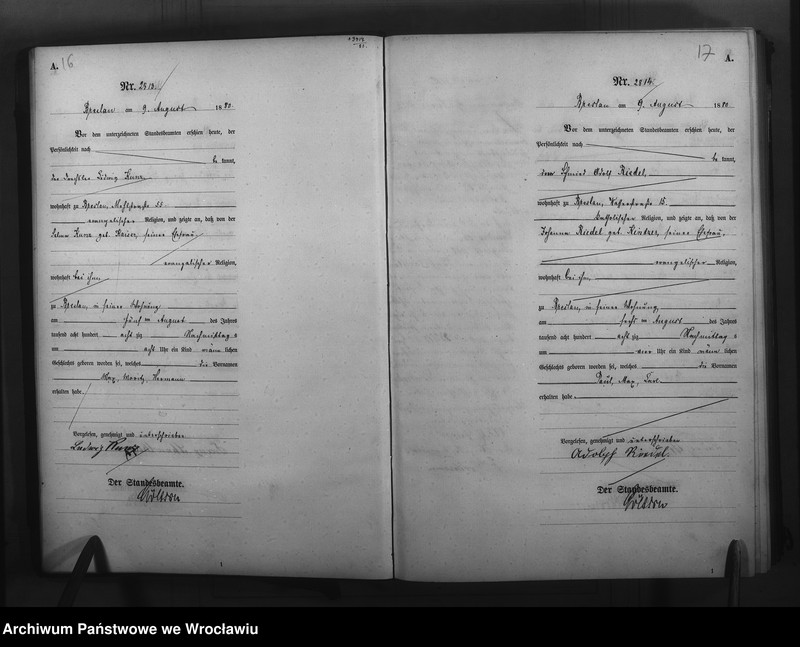 A. 16
Nr. 2813.
Breslau am 9. August 1880
Vor dem unterzeichneten Standesbeamten erschien heute, der
Persönlichkeit nach
be kannt,
der Ludwig Kunz
wohnhaft zu Breslau, 25
evangelischer Religion, und zeigte an, daß von der
Kunz geb. Kaiser, seiner Ehefrau,
evangelischer Religion,
wohnhaft bei ihm
zu Breslau, in seiner Wohnung
am fünf ten August des Jahres
tausend acht hundert acht zig Nachmittag s
um acht Uhr ein Kind männ lichen
Geschlechts geboren worden sei, welches die Vornamen
Max, Moritz, Hermann
erhalten habe.
Vorgelesen, genehmigt und unterschrieben
Ludwig Kunz
Der Standesbeamte.
1
17 A.
Nr. 2814.
Breslau am 9. August 1880
Vor dem unterzeichneten Standesbeamten erschien heute, der
Persönlichkeit nach
be kannt,
der Schmied Adolf Riedel,
wohnhaft zu Breslau, 15.
katholischer Religion, und zeigte an, daß von der
Johanna Riedel geb. seiner Ehefrau,
evangelischer Religion,
wohnhaft bei ihm
zu Breslau, in seiner Wohnung,
am sechs ten August des Jahres
tausend acht hundert acht zig Nachmittag s
um vier Uhr ein Kind männ lichen
Geschlechts geboren worden sei, welches die Vornamen
Paul, Max, Carl
erhalten habe.
Vorgelesen, genehmigt und unterschrieben
Adolph Riedel
Der Standesbeamte.
1
Archiwum Państwowe we Wrocławiu